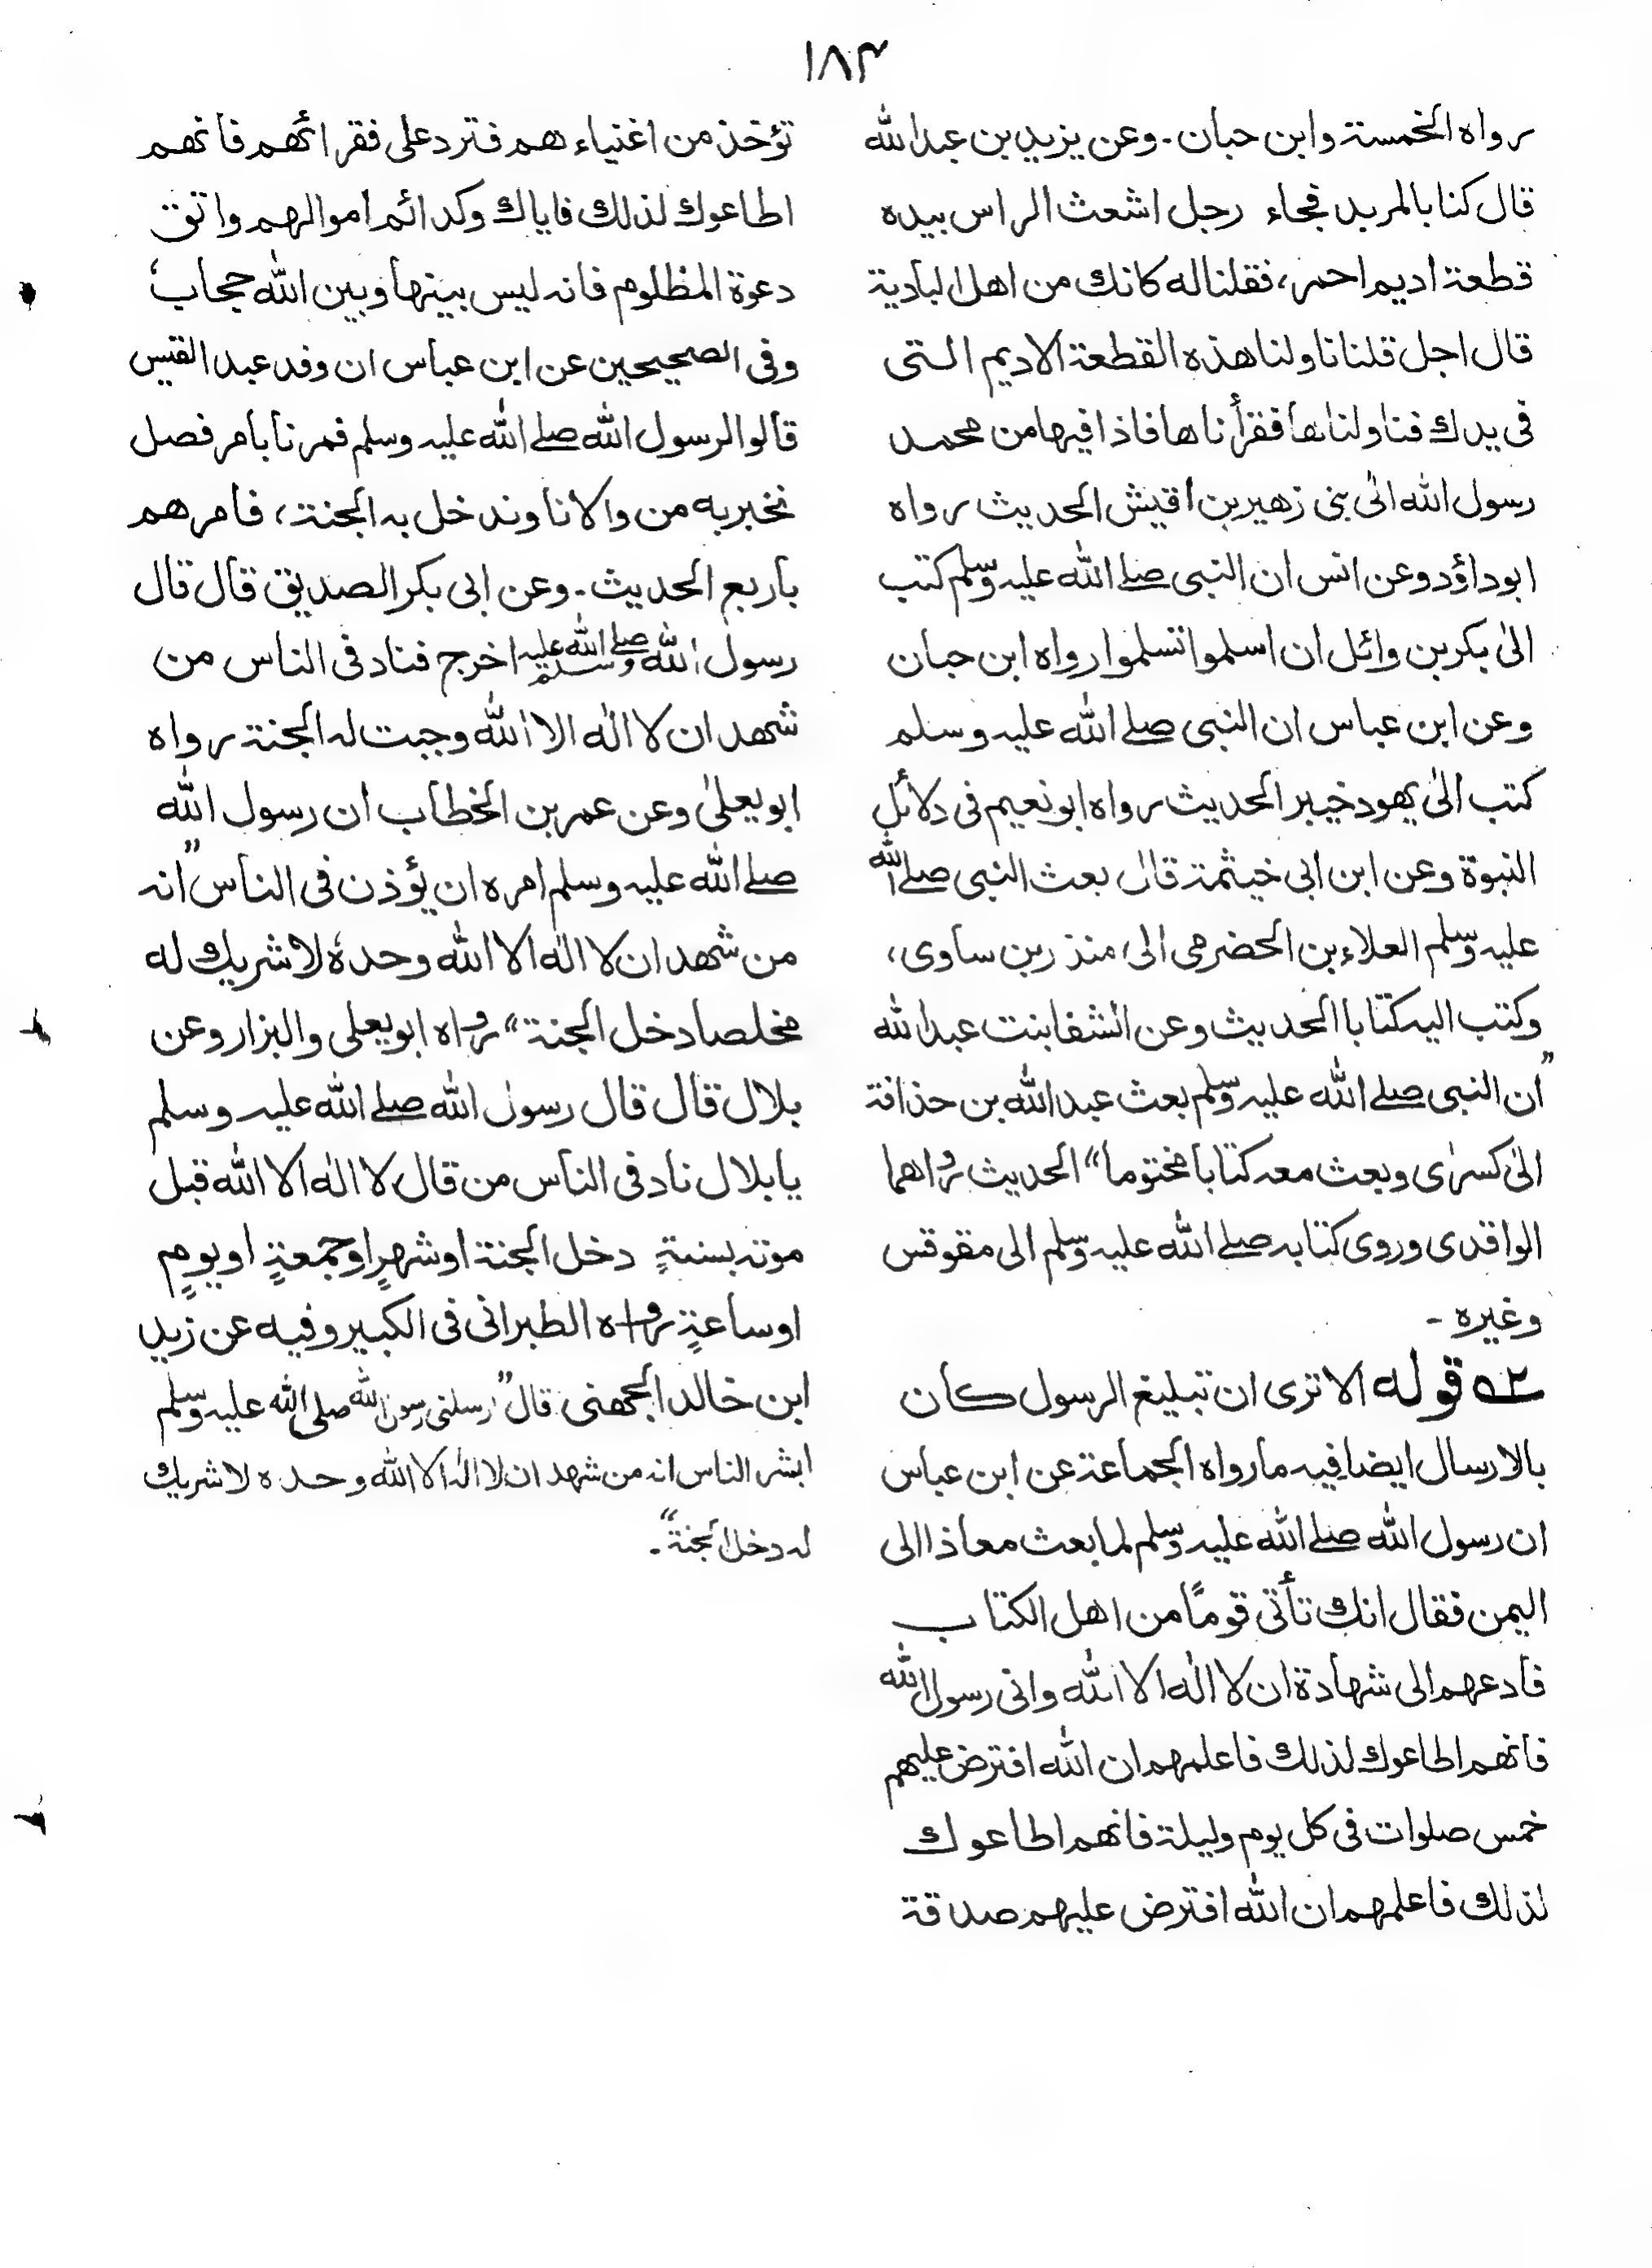 ١٨٣
رواه الخمسة وابن حبان۔ وعن يزيد بن عبد الله
قال كنا بالمربد فجاء رجل اشعث الراس بيده
قطعة اديم احمر، فقلنا له كانك من اهل البادية
قال اجل قلنا ناولنا هذه القطعة الاديم التى
فى يدك فناولناها فقرأناها فاذا فيها من محمد
رسول الله الىٰ بنى زهير بن اقيش الحديث رواه
ابوداؤد وعن انس ان النبى صلے الله عليه وسلم كتب
الىٰ بكر بن وائل ان اسلموا تسلموا رواه ابن حبان
وعن ابن عباس ان النبى صلے الله عليه وسلم
كتب الىٰ يهود خيبر الحديث رواه ابو نعيم فى دلائل
النبوة وعن ابن ابى خيثمة قال بعث النبى صلے الله
عليه وسلم العلاء بن الحضرمى الى منذر بن ساوى،
وكتب اليه كتابا الحديث وعن الشفا بنت عبد الله
”ان النبى صلے الله عليه وسلم بعث عبد الله بن حذافة
الىٰ كسرٰى وبعث معه كتابا مختوما“ الحديث رواهما
الواقدى وروى كتابه صلے الله عليه وسلم الى مقوقس
وغيره ۔
٢ـه قوله الا ترى ان تبليغ الرسول كان
بالارسال ايضا فيه ما رواه الجماعة عن ابن عباس
ان رسول الله صلے الله عليه وسلم لما بعث معاذا الى
اليمن فقال انك تأتى قومًا من اهل الكتاب
فادعهم الى شهادة ان لا الٰه الا الله وانى رسول الله
فانهم اطاعوك لذلك فاعلمهم ان الله افترض عليهم
خمس صلوات فى كل يوم وليلة فانهم اطاعوك
لذلك فاعلمهم ان الله افترض عليهم صدقة
تؤخذ من اغنياء هم فترد على فقرائهم فانهم
اطاعوك لذلك فاياك وكدائم اموالهم واتق
دعوة المظلوم فانه ليس بينها وبين الله حجاب،
وفى الصحيحين عن ابن عباس ان وفد عبد القيس
قالوا لرسول الله صلے الله عليه وسلم فمرنا بامر فصل
نخبر به من والانا وندخل به الجنة، فامرهم
باربع الحديث۔ وعن ابى بكر الصديق قال قال
رسول الله صلے الله عليه وسلم اخرج فناد فى الناس من
شهد ان لا الٰه الا الله وجبت له الجنة رواه
ابو يعلىٰ وعن عمر بن الخطاب ان رسول الله
صلے الله عليه وسلم امره ان يؤذن فى الناس ”انه
من شهد ان لا الٰه الا الله وحدهٗ لا شريك له
مخلصا دخل الجنة“ رواه ابو يعلى والبزار وعن
بلال قال قال رسول الله صلے الله عليه وسلم
يا بلال ناد فى الناس من قال لا الٰه الا الله قبل
موته بسنةٍ دخل الجنة او شهرٍ او جمعةٍ او يومٍ
او ساعةٍ رواه الطبرانى فى الكبير وفيه عن زيد
ابن خالد الجهنى قال ”ارسلنى رسول الله صلى الله عليه وسلم
ابشر الناس انه من شهد ان لا الٰه الا الله وحده لا شريك
له دخل الجنة“۔